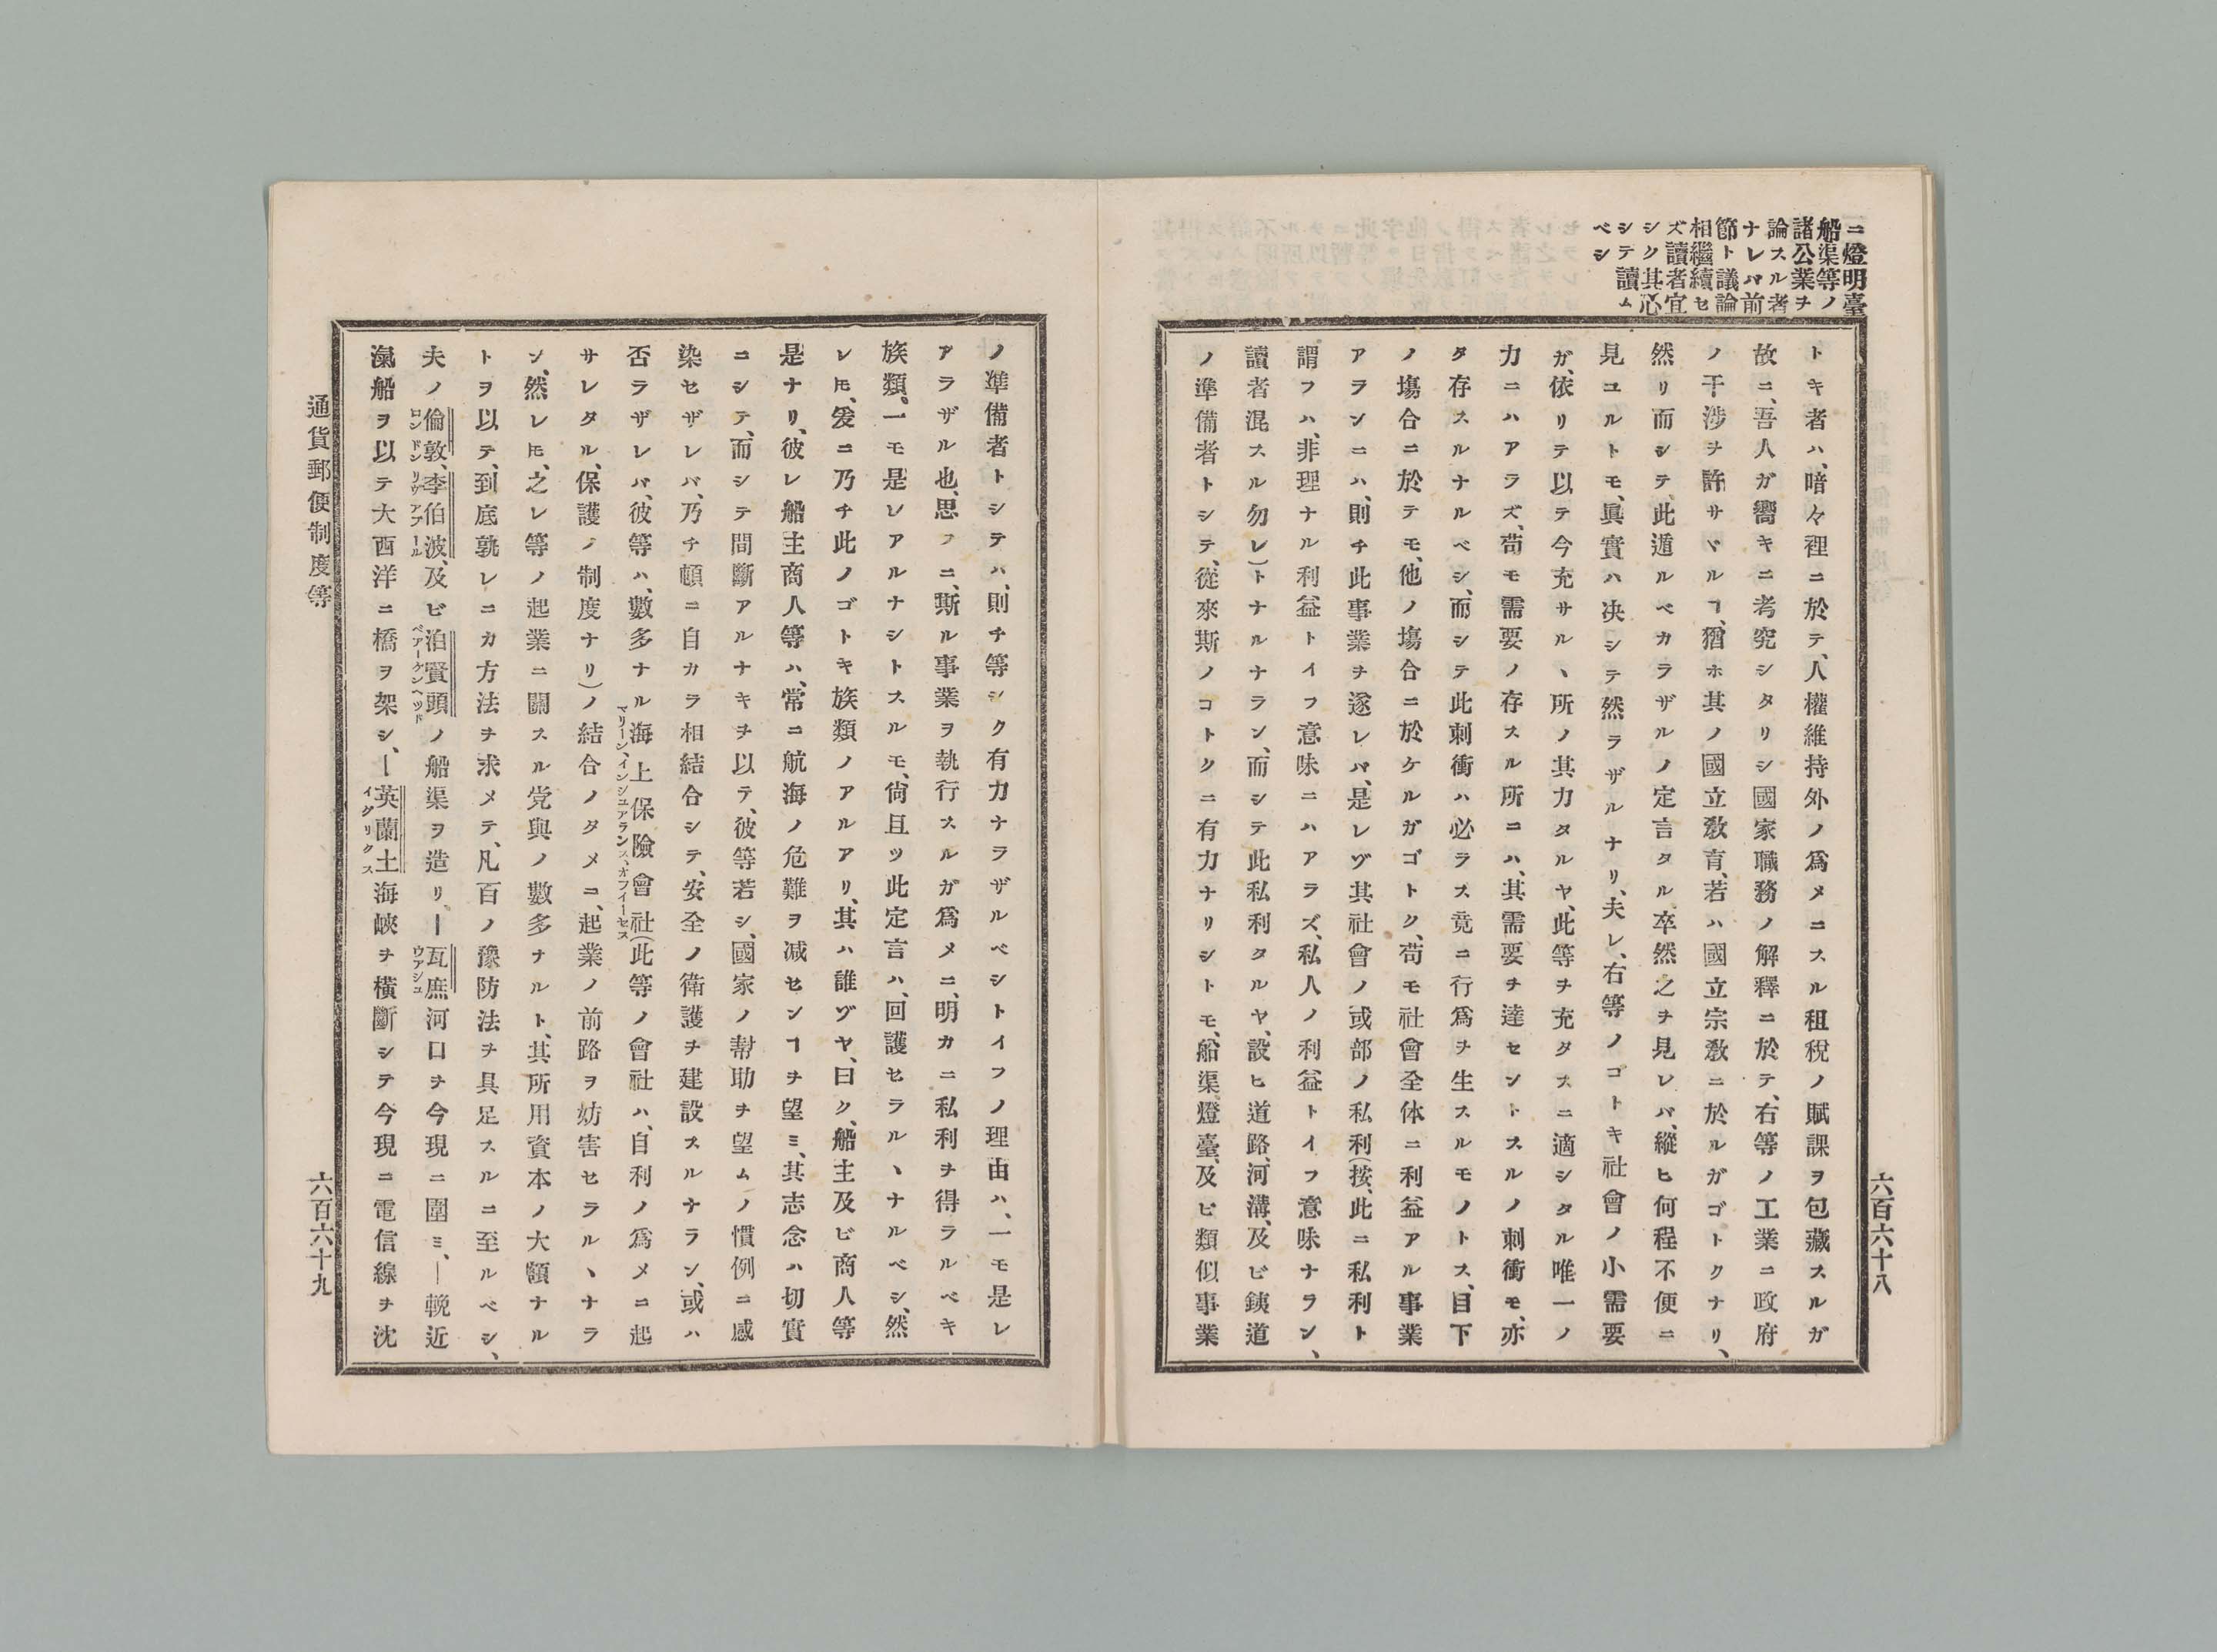 ニ燈明臺
船渠等ノ
諸公業ヲ
論スル者
ナレバ前
節ト議論
相繼續セ
ズ讀者宜
シク其心
シテ讀ム
ベシ
トキ者ハ、暗々裡ニ於テ、人權維持外ノ爲メニスル租稅ノ賦課ヲ包藏スルガ
故ニ、吾人ガ嚮キニ考究シタリシ國家職務ノ解釋ニ於テ、右等ノ工業ニ政府
ノ干涉ヲ許サヾルヿ、猶ホ其ノ國立敎育、若ハ國立宗敎ニ於ルガゴトクナリ、
然リ而シテ、此遁ルベカラザルノ定言タル卒然之ヲ見レバ、縱ヒ何程不便ニ
見ユルトモ、眞實ハ决シテ然ラザルナリ、夫レ、右等ノゴトキ社會ノ小需要
ガ、依リテ以テ今充サルヽ所ノ其力タルヤ、此等ヲ充タスニ適シタル唯一ノ
力ニハアラズ、苟モ需要ノ存スル所ニハ、其需要ヲ達セントスルノ刺衝モ、亦
タ存スルナルベシ、而シテ此刺衝ハ必ラス竟ニ行爲ヲ生スルモノトス、目下
ノ塲合ニ於テモ、他ノ塲合ニ於ケルガゴトク、苟モ社會全体ニ利益アル事業
アランニハ、則チ此事業ヲ遂レバ、是レヅ其社會ノ或部ノ私利(按、此ニ私利ト
謂フハ、非理ナル利益トイフ意味ニハアラズ、私人ノ利益トイフ意味ナラン、
讀者混スル勿レ)トナルナラン、而シテ此私利タルヤ、設ヒ道路、河溝、及ビ銕道
ノ準備者トシテ、從來斯ノコトクニ有力ナリシトモ、船渠燈臺、及ビ類似事業
六百六十八
ノ準備者トシテハ、則チ等シク有力ナラザルベシトイフノ理由ハ、一モ是レ
アラザル也、思フニ、斯ル事業ヲ執行スルガ爲メニ、明カニ私利ヲ得ラルベキ
族類、一モ是レアルナシトスルモ、尙且ツ此定言ハ、回護セラルヽナルベシ、然
レ𪜈、爰ニ乃チ此ノゴトキ族類ノアルアリ、其ハ誰ヅヤ、曰ク、船主及ビ商人等
是ナリ、彼レ船主商人等ハ、常ニ航海ノ危難ヲ减センヿヲ望ミ、其志念ハ切實
ニシテ、而シテ間斷アルナキヲ以テ、彼等若シ、國家ノ幇助ヲ望ムノ慣例ニ感
染セザレバ、乃チ頓ニ自カラ相結合シテ、安全ノ衛護ヲ建設スルナラン、或ハ
否ラザレバ、彼等ハ、數多ナル海上保險會社(此等ノ會社ハ、自利ノ爲メニ起
マリーン、インシユアランス、オフイーセス
サレタル、保護ノ制度ナリ)ノ結合ノタメニ、起業ノ前路ヲ妨害セラルヽナラ
ン、然レ𪜈、之レ等ノ起業ニ關スル党與ノ數多ナルト、其所用資本ノ大額ナル
トヲ以テ、到底孰レニカ方法ヲ求メテ、凡百ノ豫防法ヲ具足スルニ至ルベシ、
夫ノ倫敦、李伯波、及ビ泊賢頭ノ船渠ヲ造リ、―瓦庶河口ヲ今現ニ圍ミ、―輓近
ロンドン リヴアプール ベアーケンヘツド ウアシユ
滊船ヲ以テ大西洋ニ橋ヲ架シ、―英蘭土海峽ヲ橫斷シテ今現ニ電信線ヲ沈
イグリクス
通貨郵便制度等
六百六十九